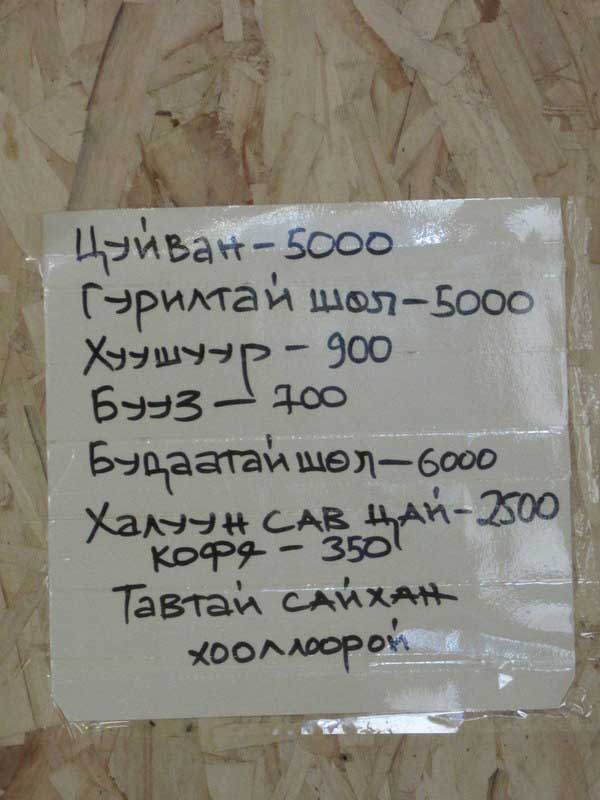 Цуйван - 5000
Гурилтай шөл - 5000
Хуушуур - 900
Бууз - 700
Будаатай шөл - 6000
Халуун сав цай - 2500
кофя - 350
Тавтай сайхан
хооллоорой